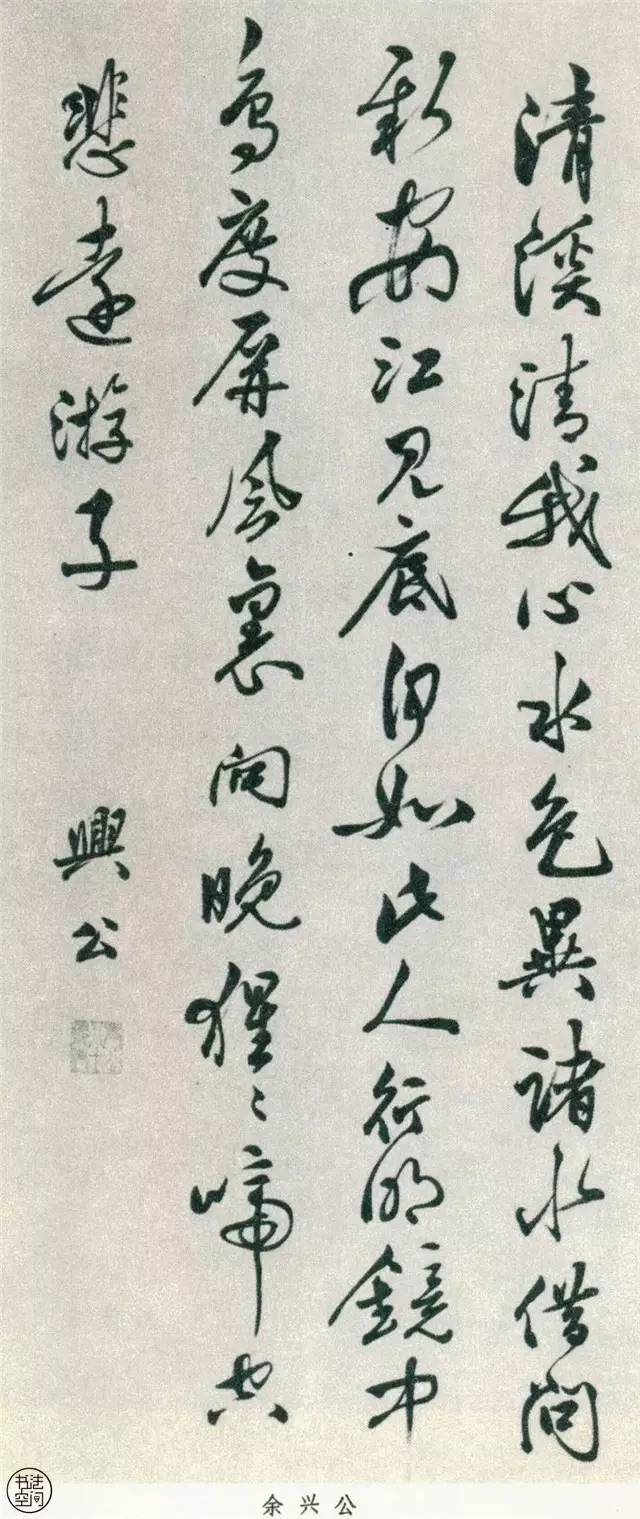 清溪清我心水色異諸水借問
新安江見底何如此人行明鏡中
鳥度屏風裏向晚猩〻啼空
悲遠游子
興公
书法
空间
余兴公